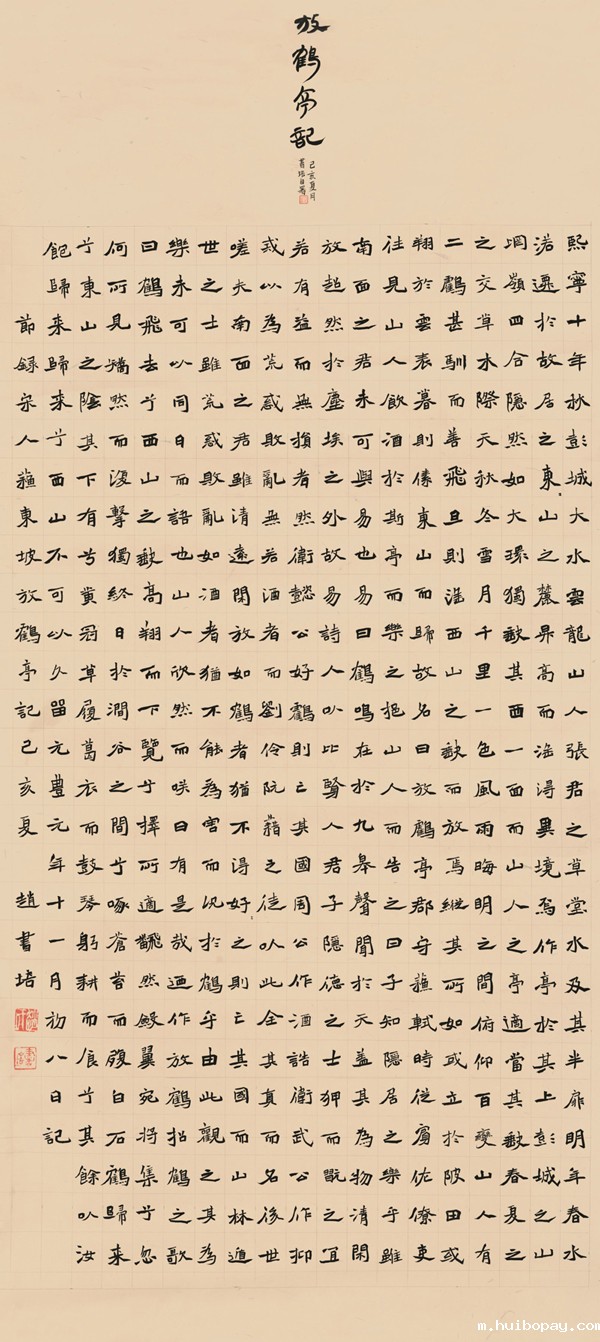 放鶴亭記
己亥夏月
書培自署
熙寧十年秋彭城大水雲龍山人張君之草堂水及其半扉明年春水
落遷於故居之東山之麓昇高而望得異境焉作亭於其上彭城之山
岡嶺四合隱然如大環獨缺其西一面而山人之亭適當其缺春夏之
之交草木際天秋冬雪月千里一色風雨晦明之間俯仰百變山人有
二鶴甚馴而善飛旦則望西山之缺而放焉縱其所如或立於陂田或
翔於雲表暮則傃東山而歸故名曰放鶴亭郡守蘇軾時從賓佐僚吏
往見山人飲酒於斯亭而樂之挹山人而告之曰子知隱居之樂乎雖
南面之君未可與易也易曰鶴鳴在於九皋聲聞於天蓋其為物清閑
放超然於塵埃之外故易詩人以比賢人君子隱德之士狎而翫之宜
若有益而無損者然衛懿公好鶴則亡其國周公作酒誥衛武公作抑
或以為荒惑敗亂無若酒者而劉伶阮籍之徒以此全其真而名後世
嗟夫南面之君雖清遠閑放如鶴者猶不得好之則亡其國而山林遁
世之士雖荒惑敗亂如酒者猶不能為害而況於鶴乎由此觀之其為
樂未可以同日而語也山人欣然而咲曰有是哉迺作放鶴招鶴之歌
曰鶴飛去兮西山之缺高翔而下覽兮擇所適翻然斂翼宛將集兮忽
何所見矯然而復擊獨終日於澗谷之間兮啄蒼苔而履白石鶴歸來
兮東山之陰其下有兮黃冠草屨葛衣而鼓琴躬耕而食兮其餘以汝
飽歸來歸來兮西山不可以久留元豐元年十一月初八日記
節錄宋人蘇東坡放鶴亭記己亥夏趙書培
m.huibopay.com